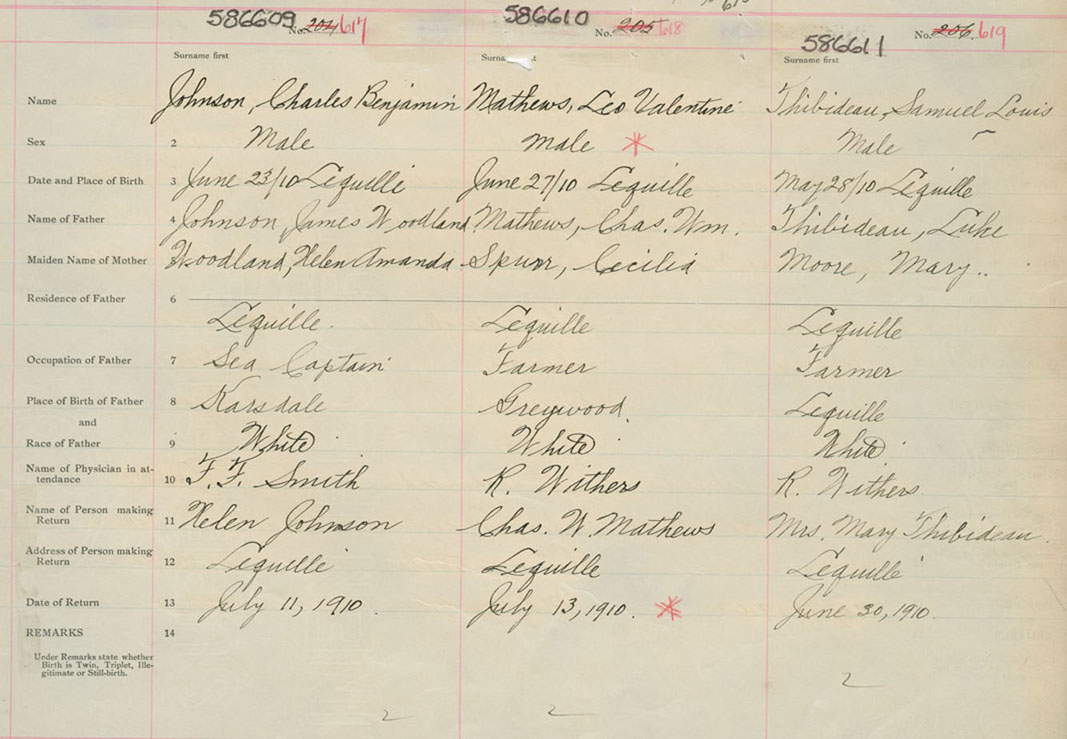 586609 No. 204 617 586610 No. 205 618 586611 No. 206. 619
Surname first Surna t Surname first
Name Johnson, Charles Benjamin Mathews, Leo Valentine Thibideau, Samuel Louis
Sex 2 Male Male Male
Date and Place of Birth 3 June 23/10 Lequille June 27/10 Lequille May 28/10 Lequille
Name of Father 4 Johnson, James Woodland Mathews, Chas. Wm. Thibideau, Luke
Maiden Name of Mother Woodland, Helen Amanda Spurr, Cecilia Moore, Mary..
Residence of Father 6
Lequille. Lequille Lequille
Occupation of Father 7 Sea Captain Farmer Farmer
Place of Birth of Father 8 Karsdale Greywood. Lequille
and
Race of Father 9 White White White
Name of Physician in at-
tendance 10 F. F. Smith R. Withers R. Withers
Name of Person making
Return 11 Helen Johnson Chas. W. Mathews Mrs. Mary Thibideau.
Address of Person making
Return 12 Lequille Lequille Lequille
Date of Return 13 July 11, 1910. July 13, 1910. June 30, 1910.
REMARKS 14
Under Remarks state whether
Birth is Twin, Triplet, Ille-
gitimate or Still-birth.
2 2 2